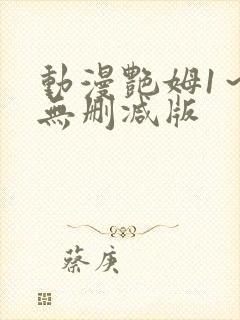 動漫艷姆1~
無刪减版
蔡庚